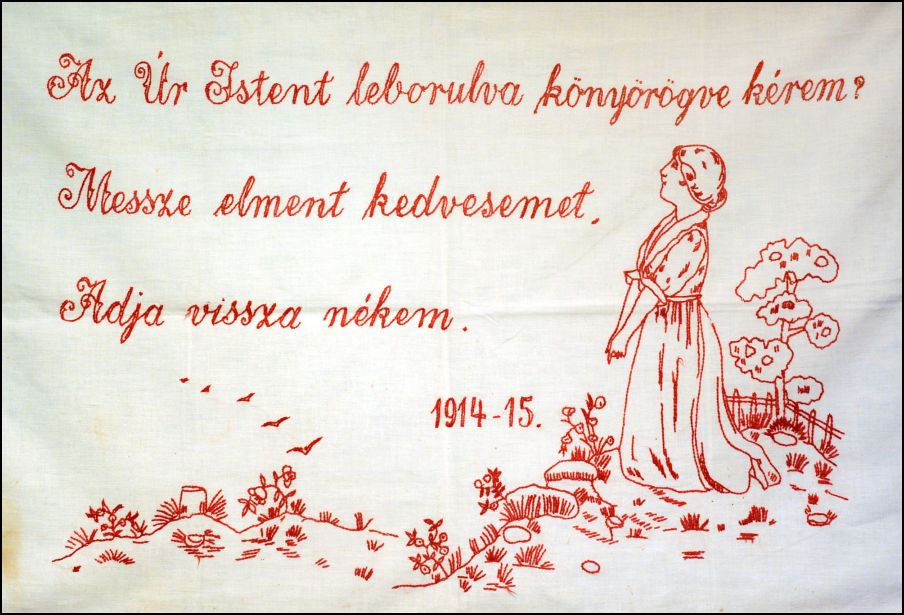 Az Úr Istent leborulva könyörögve kérem?
Messze elment kedvesemet.
Adja vissza nékem.
1914-15.